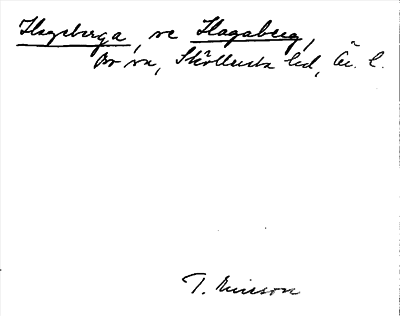 Hageberga, se Hagaberg,
Bo sn, Sköllersta hd, Ör. l.
T. Ericsson